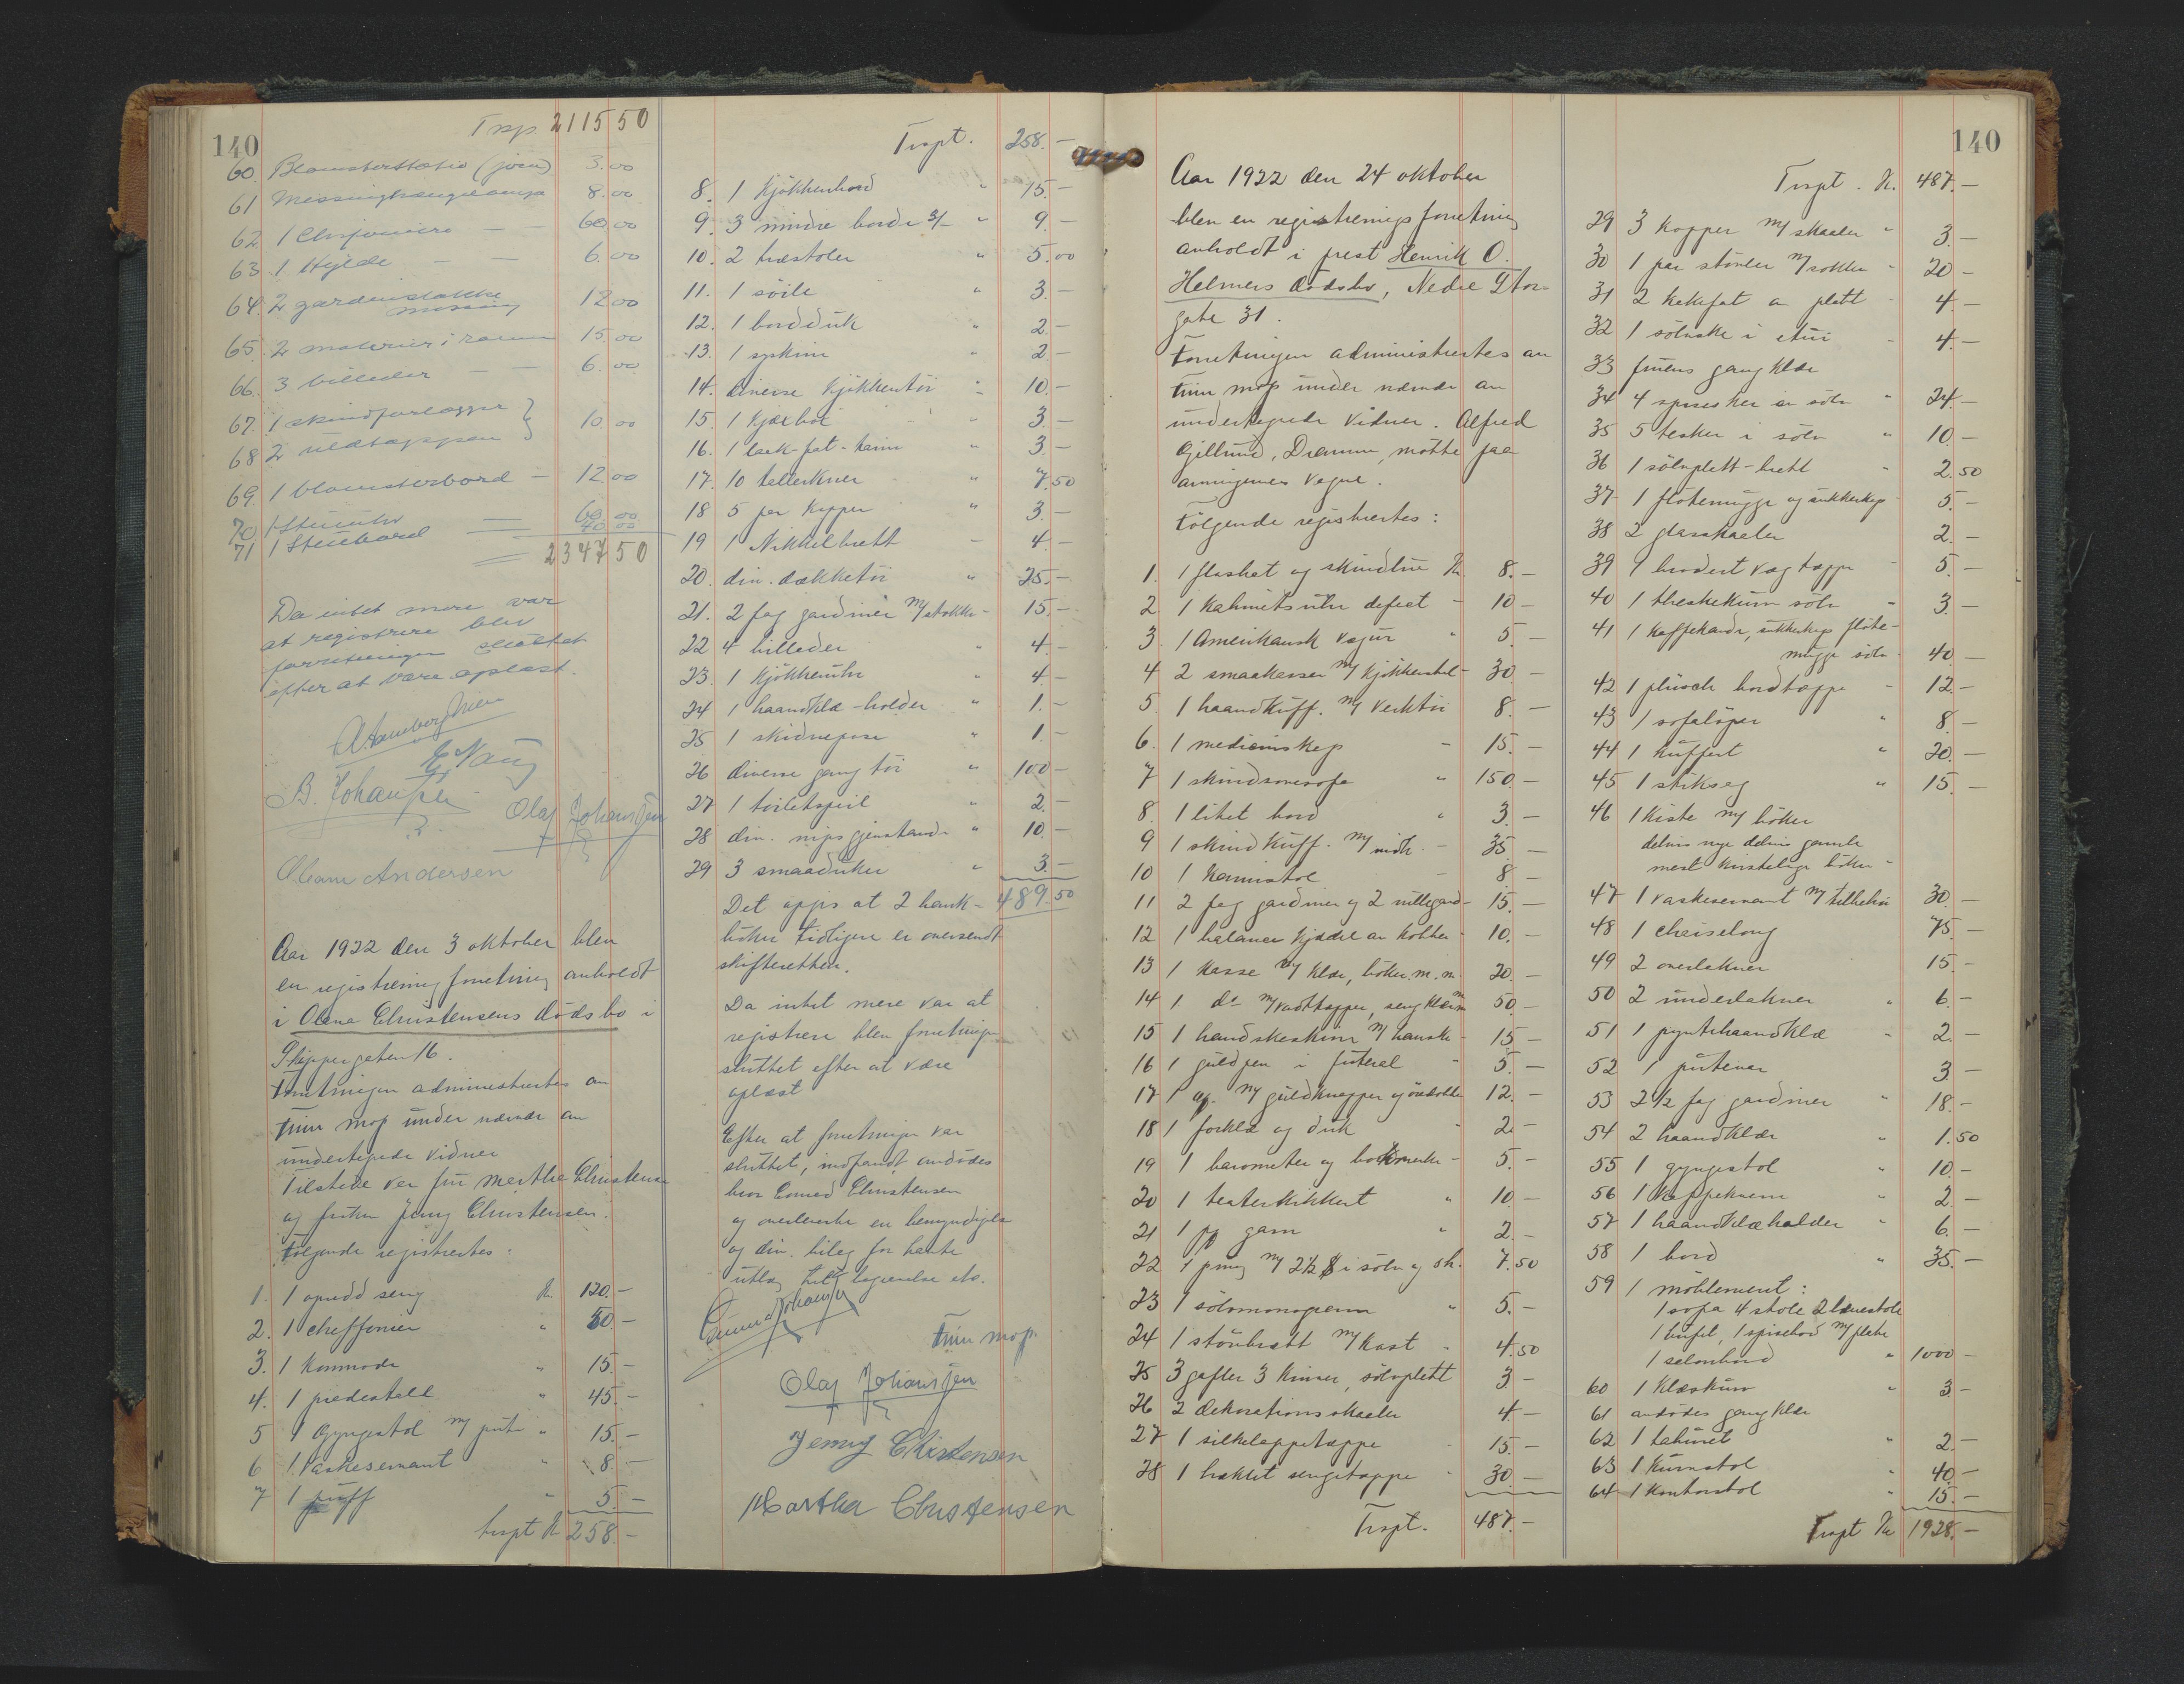 140
Trsp. 2115 50
60. Blomsterstativ (jern) 3.00
61 Messinghængelampe 8.00
62 1 Chifoniere — — 60.00
63 1 Hylde — — 6.00
64. 2 gardinstokke 12 00
messing
65. 2 malerier i ramme 15.00
66. 3 billeder — — 6.00
67. 1 skindforlægger } 10.00
68 2 uldtæpper
69. 1 blomsterbord — 12.00
70 1 Stueuhr — 60.00
71 1 Stuebord — 70 00
2347 50
Da intet mere var
at registrere blev
forretningen sluttet
efter at være oplæst.
E. Naug
B. Johansen
Olaf Johansen
Andersen
Aar 1922 den 3 oktober blev
en registreringsforretning avholdt
i Olena Christensens dødsbo i
Skippergaten 16.
Forretningen administrertes av
Finn Mop under nærvær av
undertegnede vidner
Tilstede var fru Marthe Christensen
og frøken Jenny Christensen.
Følgende registrertes:
1. 1 opredd seng Kr. 120.—
2. 1 cheffonier " 50.—
3. 1 kommode " 15.—
4. 1 piedestall " 45.—
5 1 Gyngestol m/ pute " 15.—
6 1 Vaskeservant " 8.—
7 1 puff " 5.—
trspt Kr 258.—
Trspt. 258.—
8. 1 Kjøkkenbord " 15.—
9. 3 mindre borde 3/- " 9.—
10. 2 træstoler " 5.00
11. 1 söile " 3.—
12. 1 bordduk " 2.—
13. 1 syskrin " 2.—
14. diverse Kjökkentöi " 10.—
15. 1 Kjærbøl " 3.—
16. 1 3.—
17. 10 tallerkner " 7.50
18 5 par Kopper " 3.—
19 1 Nikkelbrett — 4.—
20. div. dækketöi " 25.—
21. 2 fag gardiner m/stokke - 15.—
22 4 billeder " 4.—
23. 1 Kjökkenuhr " 4.—
24 1 haandklæ-holder " 1.—
25 1 skidnepose " 1.—
26 diverse gangtöi " 100—
27 1 toiletspeil " 2.—
28 div. nips gjenstande " 10.—
29 3 smaaduker " 3—
489.50
Det oppgis at 2 bank-
böker tidligere er oversendt
skifteretten.
Da intet mere var at
registrere blev forretningen
sluttet efter at være
oplæst
Efter at forretningen var
sluttet, indfandt avdödes
bror Conrad Christensen
og overleverte en bemyndigelse
og div. bilag for havte
utlæg til begravelse etc.
Finn Mop.
Olaf Johansen
Jenny Christensen
Martha Christensen
140
Aar 1922 den 24 oktober
blev en registreringsforretning
avholdt i prest Henrik O.
Helmers dödsbo, Nedre Stor-
gate 31.
Forretningen administrertes av
Finn Mop under nærvær av
undertegnede vidner. Alfred
Gjellrud, Drammen, mötte paa
arvingernes vegne.
Fölgende registrertes:
1. 1 floshat og skindlue Kr. 8.—
2 1 kabinetsuhr defect - 10—
3. 1 Amerikansk vægur " 5.—
4 2 smaakasser m/ kjökkenstel - 30.—
5. 1 haandkuff. m/ verktöi 8.—
6. 1 medicinskap - 15.—
7 1 skindsovesofa " 150.—
8. 1 litet bord " 3.—
9 1 skindkuff. m/ indh. - 35.—
10 1 kurvstol 8.—
11 2 fag gardiner og 2 rullegard- 15.—
12 1 balance kjedel av kobber - 10.—
13 1 kasse m/ klær, böker m.m. 20.—
14 1 do m/vadttepper, sengklær 50.—
15 1 handskeskrin m/ hansk- 15.—
16 1 guldpen i futeral " 5.—
17 1 m/ guldknapper og öredobber 12.—
18 1 forklæ og duk " 2.—
19 1 barometer og bokmerke - 5.—
20 1 teaterkikkert " 10.—
21 1 pp garn " 2.—
22 1 pung m/ 2½ $ i sölv og sk. 7.50
23 1 sölvmonogram " 5.—
24 1 stövbrett m/ kost " 4.50
25 3 gafler 3 kniver, sölvplett 3.—
26 2 dekorationsskaaler 4.—
27 1 silkelappetæppe 15.—
28 1 hæklet sengetæppe 30.—
Trspt. 487.—
Trspt. Kr. 487.—
29 3 kopper m/ skaaler " 3.—
30 1 par stövler m/ sokker - 20—
31 2 kakefat av plett 4.—
32 1 sölvske i etui - 4.—
33 fruens gangklær
34 4 spiseskeer av sölv " 24.—
35 5 teskeer i sölv " 10.—
36 1 sölvplett-brett " 2.50
37 1 flötemugge og sukkerkop 5.—
38 2 glasskaaler 2.—
39 1 brodert vægtæppe - 5.—
40 1 theskekurv sölv " 3—
41 1 kaffekande, sukkerkop flöte-
mugge sölv - 40.—
42 1 plüsch bordtæppe - 12.—
43 1 sofalöper " 8.—
44 1 kuffert " 20.—
45 1 stiksag " 15.—
46 1 kiste m/ böker
delvis nye delvis gamle
mest kristelige böker "
47 1 vaskeservant m/ tilbehör 30.—
48 1 cheiselong 75.—
49 2 overlakner 15.—
50 2 underlakner " 6.—
51 1 pyntehaandklæ " 2.—
52 1 putevar 3—
53 2½ fag gardiner " 18.—
54 2 haandklær " 1.50
55 1 gyngestol " 10.—
56 1 " 2.—
57 1 haandklæholder " 6.—
58 1 bord " 35.—
59 1 möblement:
1 sofa 4 stole 2 lænestole
1 bufet, 1 spisebord m/ plate
1 salonbord " 1000—
60 1 klæskurv " 3—
61 avdödes gangklær
62 1 taburet " 2.—
63 1 kurvstol " 40.—
64 1 kontorstol " 15.—
Trspt Kr 1928.—